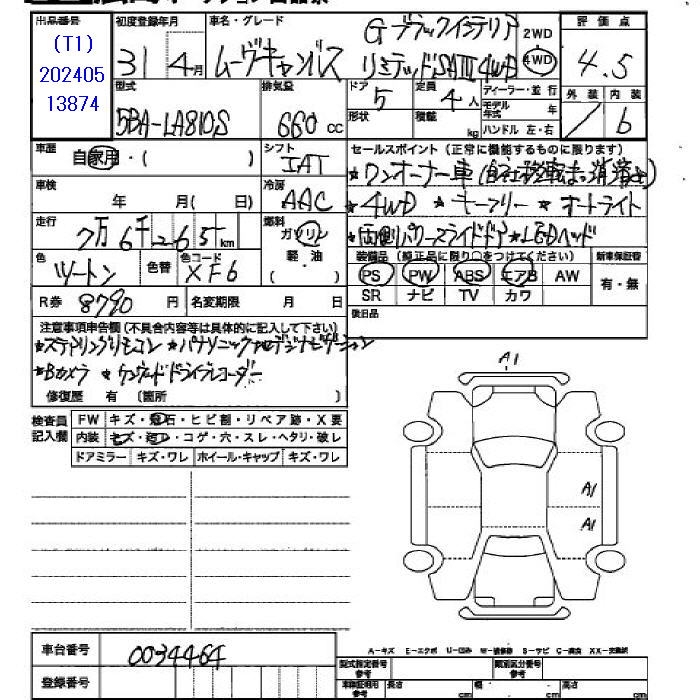 出品番号 初度登録年月 車名・グレード 評価点
(T1)
202405
13874
31 4月
ムーヴキャンバス
Gブラックインテリア
リミテッドSAⅢ 4WD
2WD
4WD
4.5
型式
5BA-LA810S
排気量
660 cc
ドア
5
定員
4人
ディーラー・並行
モデル年式 年
形状
積載 kg
ハンドル 左・右
外装 内装
b
車歴
自家用・( )
シフト
IAT
セールスポイント (正常に機能するものに限ります)
★ワンオーナー車
★4WD ★キーフリー ★オートライト
★両側パワースライドドア ★LEDヘッド
車検
年 月( 日)
冷房
AAC
走行
7万6千265km
燃料
ガソリン
軽・油
( )
色
ツートン
色替
色コード
XF6
装備品 (純正品に限り○をつけてください) 新車保証書
PS PW ABS エアB AW
SR ナビ TV カワ
有・無
R券 8790円
名変期限 月 日
後日品
注意事項申告欄(不具合内容等は具体的に記入して下さい)
★ステアリングリモコン ★パナソニック
★Bカメラ ★ケンウッドドライブレコーダー
修復歴 有 〔箇所 〕
検査員記入欄
FW キズ・飛石・ヒビ割・リペア跡・X要
内装 キズ・汚レ・コゲ・穴・スレ・ヘタリ・破レ
ドアミラー キズ・ワレ ホイール・キャップ キズ・ワレ
A1
A1
A1
車台番号
0034464
A-キズ E-エクボ U-凹み W-補修跡 S-サビ C-腐食 XX-交換跡
登録番号
型式指定番号 参考
類別区分番号 参考
車検証明用 参考
長さ cm
幅 cm
高さ cm